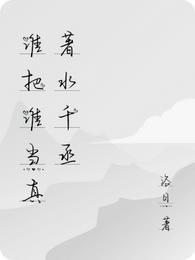 谁把谁当真
著水千丞
洛日
著